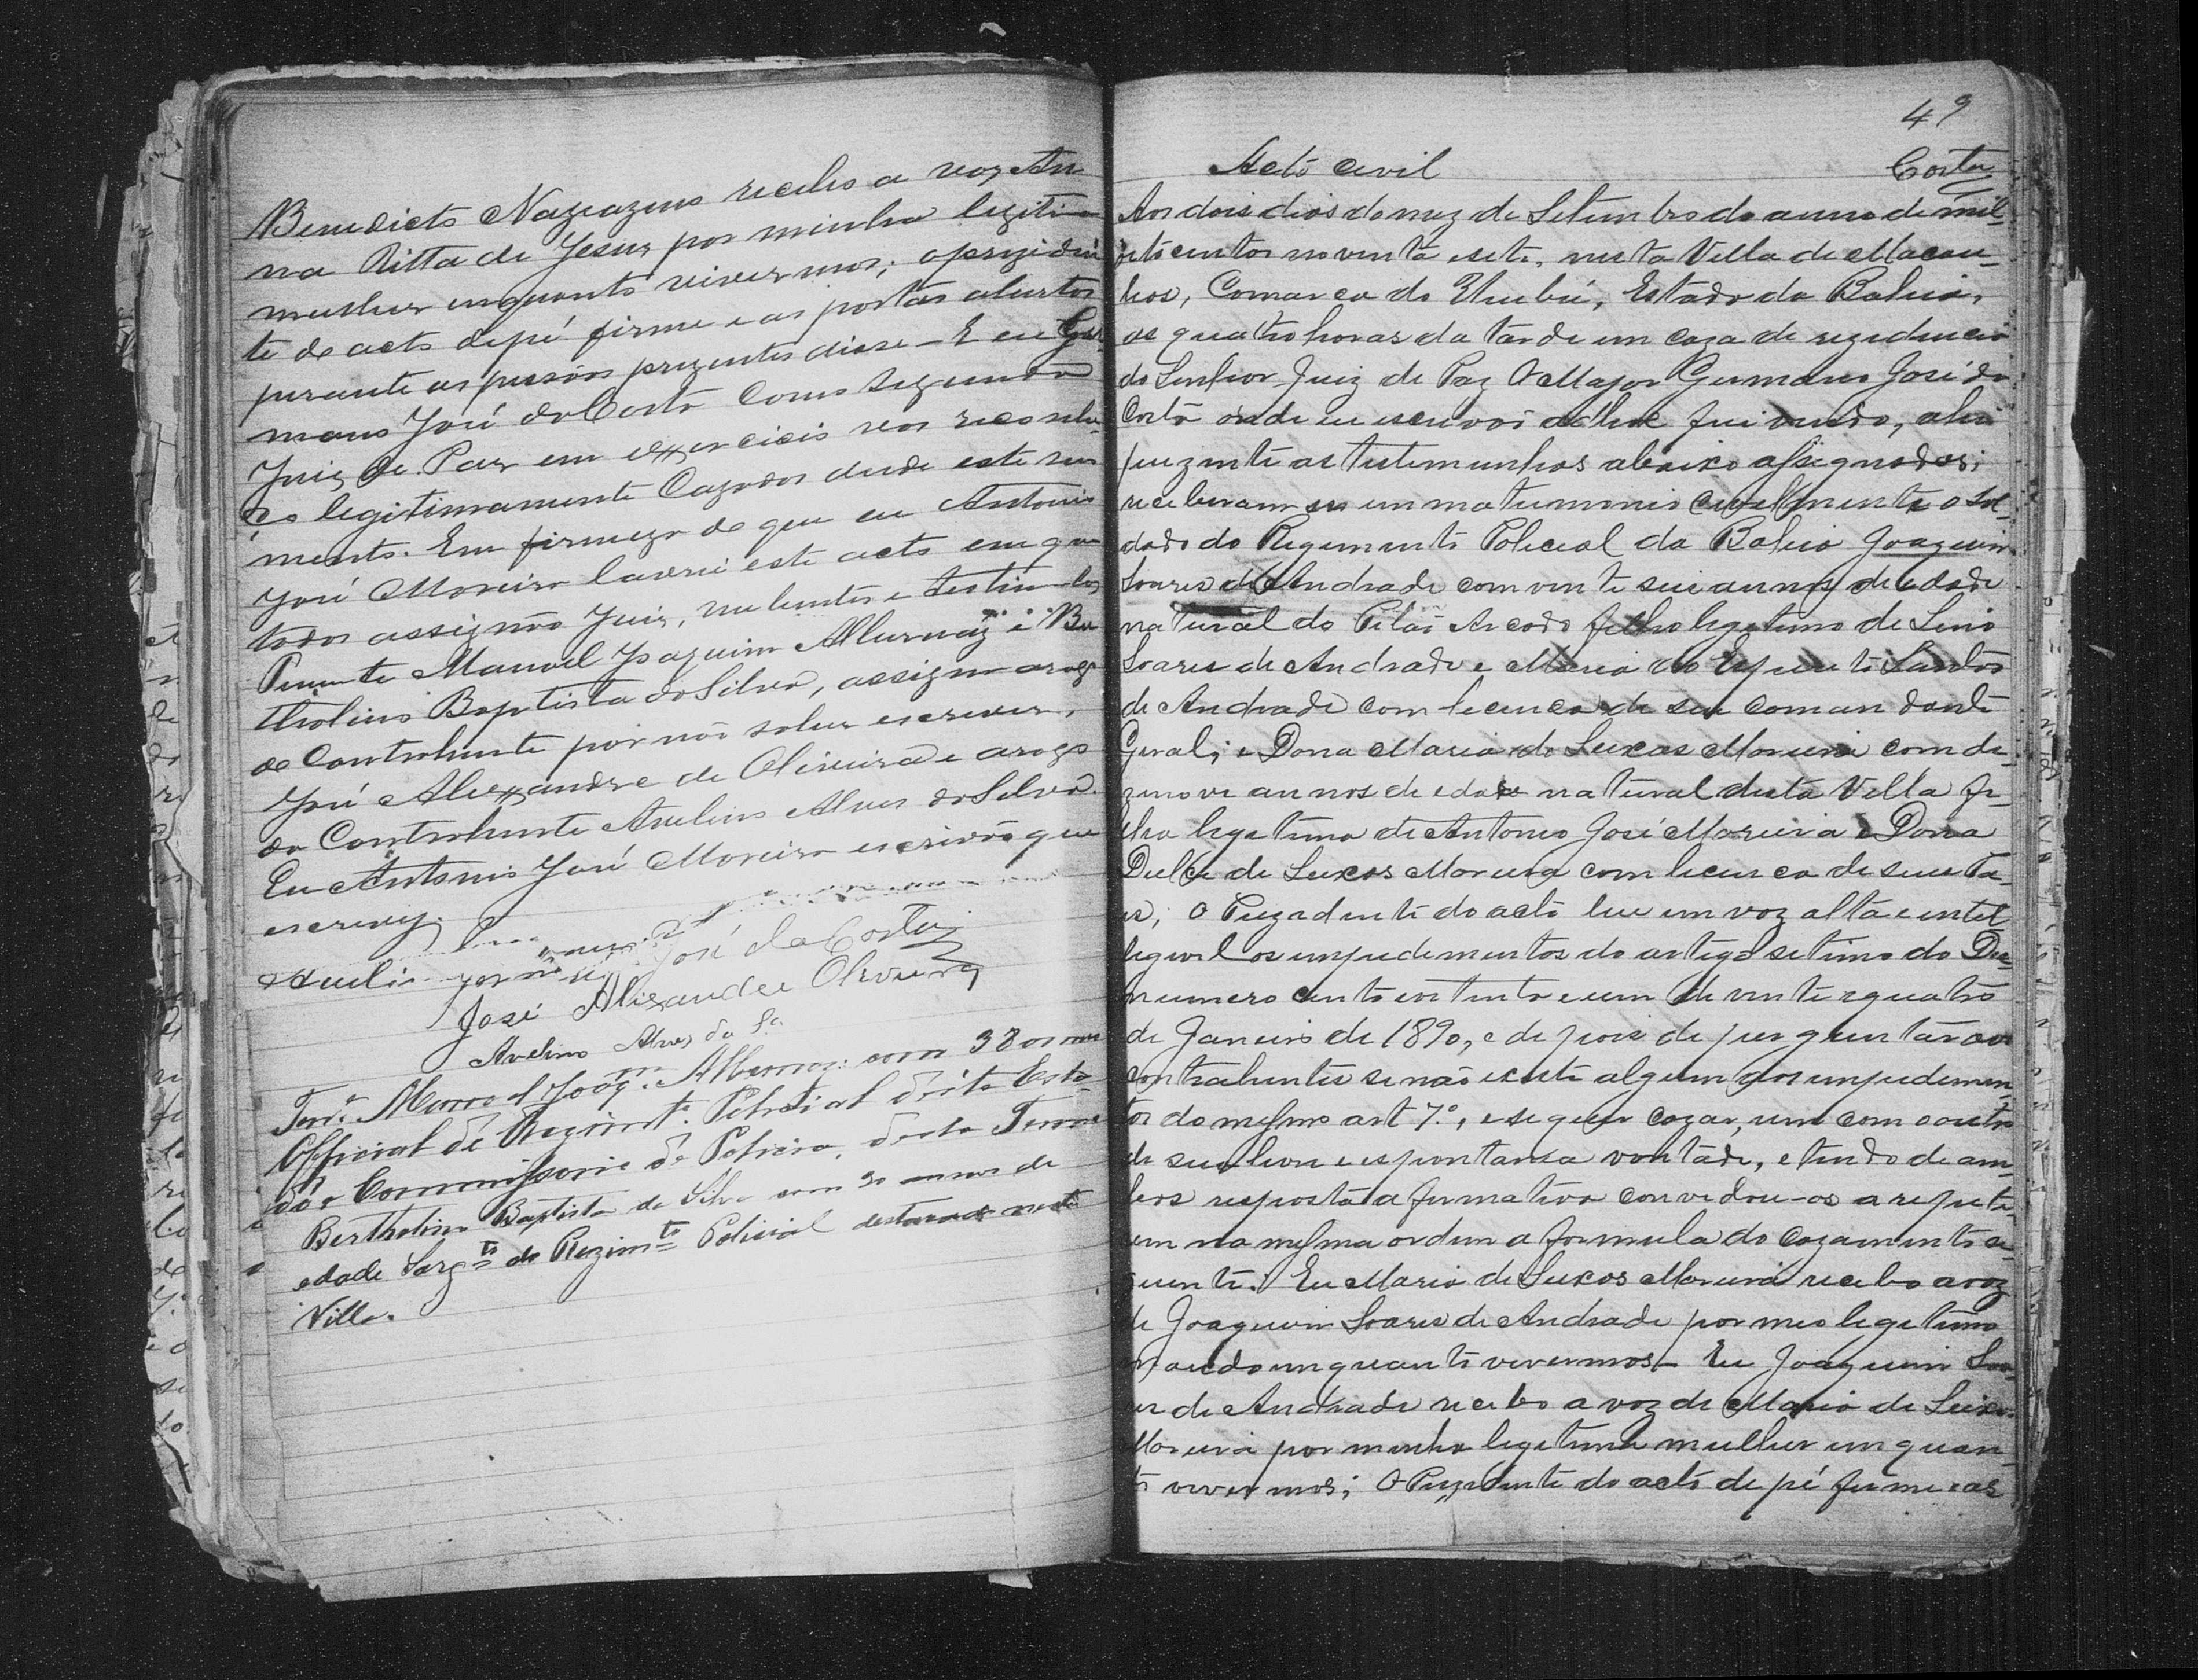 Benedicto Nazeazeno recebo a voz An
na Ritta de Jesus por minha legitima
mulher enquanto vivermos; opreziden
te do acto depé firme e as portas abertas
perante as pessôas prezentes disse - E eu Ger
mano José da Costa como segundo
Juiz de Paz em exxercicio vos reconhe
ço legitimamente Cazados desde este mo
mento. Em firmeza de que eu Antonio
José Moreira lavrei este acto em que
todos assignão Juiz, nubentes e testim
Tenente Manoel Joaquim Allurnaz e Ber
tholino Baptista da Silva, assigna arogo
do Contrahente por não saber escrever,
José Alexxandre de Oliveira e arogo
da Contrahente Avelino Alves da Silva.
Eu Antonio José Moreira escrivão que
escrevy.
José da Costa
José Alixandre Oliveira
Avelino Alves da Sª
Tenᵉ Manoel Joaqᵐ Albernaz com 38 annos
Official do Regimtº Policial deste Esta-
do e Commissario de Policia, deste Termo
Bertholino Baptista da Silva com 30 annos de
edade Sargᵗᵒ do Regimᵗᵒ Policial destacado nesta
Villa.
49
Acto civil Costa
Aos dois dias do mez de Setembro do anno de mil
oitocentos noventa e sete, nesta Villa de Macau-
bas, Comarca do Urubú, Estado da Bahia,
as quatro horas da tarde em caza de rezidencia
do Senhor Juiz de Paz O Major Germano José da
Costa onde eu escrivão adhoc fui vindo, ahi
prezente as testemunhas abaixo assignadas;
receberam se em matrimonio civelmente o Sol-
dado do Regimento Policial da Bahia Joaquim
Soares de Andrade com vinte seis annos de edade
natural do Pilão Arcado filho legitimo de Lino
Soares de Andrade e Maria do Espirito Santo
de Andrade com licença de seu comandante
Geral; e Dona Maria de Lucas Moreira com de-
zenove annos de edade natural desta Villa fi-
lha legitima de Antonio José Moreira e Dona
Dulce de Lucas Moreira com licença de seus Pa-
es; O Prezidente do acto leu em voz alta e intel-
ligivel os impedimentos do artigo setimo do Dec
numero cento e oitenta e um de vinte e quatro
de Janeiro de 1890, e depois de perguntar aos
contrahentes se não existe algum dos impedimen-
tos do mesmo art 7.º, e se quer cazar, um com o outro
de sua livre e espontanea vontade, e tendo de am-
bos resposta afirmativa convidou-os a repeti-
rem na mesma ordem a formula do cazamento se-
guinte. Eu Maria de Lucas Moreira recebo a voz
de Joaquim Soares de Andrade por meo legitimo
marido enquanto vivermos - Eu Joaquim Soa-
res de Andrade recebo a voz de Maria de Lucas
Moreira por minha legitima mulher enquan-
to vivermos; O Prezidente do acto de pé firme e as